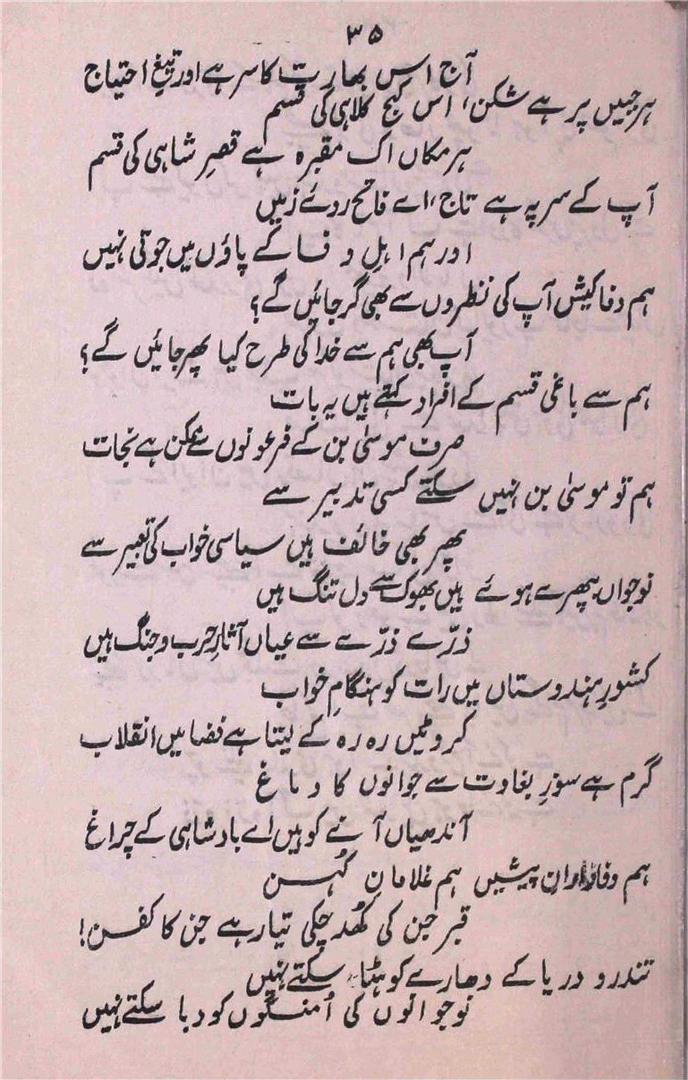 ۳۵
آج اس بھارت کا سر ہے اور تیغِ احتیاج
ہر جبیں پر ہے شکن، اس کج کلاہی کی قسم
ہر مکاں اک مقبرہ ہے قصرِ شاہی کی قسم
آپ کے سر پہ ہے تاج، اے فاتحِ روئے زمیں
اور ہم اہلِ وفا کے پاؤں میں جوتی نہیں
ہم وفا کیش آپ کی نظروں سے بھی گر جائیں گے؟
آپ بھی ہم سے خدا کی طرح کیا پھر جائیں گے؟
ہم سے باغی قسم کے افراد کہتے ہیں یہ بات
صرف موسیٰ بن کے فرعونوں سے ممکن ہے نجات
ہم تو موسیٰ بن نہیں سکتے کسی تدبیر سے
پھر بھی خائف ہیں سیاسی خواب کی تعبیر سے
نوجواں بپھرے ہوئے ہیں بھوک سے دل تنگ ہیں
ذرّے ذرّے سے عیاں آثارِ حرب و جنگ ہیں
کشورِ ہندوستاں میں رات کو ہنگامِ خواب
کروٹیں رہ رہ کے لیتا ہے فضا میں انقلاب
گرم ہے سوزِ بغاوت سے جوانوں کا دماغ
آندھیاں آنے کو ہیں اے بادشاہی کے چراغ
ہم وفادارانِ پیشیں ہم غلامانِ کُہن
قبر جن کی کُھد چکی تیار ہے جن کا کفن!
تندرو دریا کے دھارے کو ہٹا سکتے نہیں
نوجوانوں کی اُمنگوں کو دبا سکتے نہیں